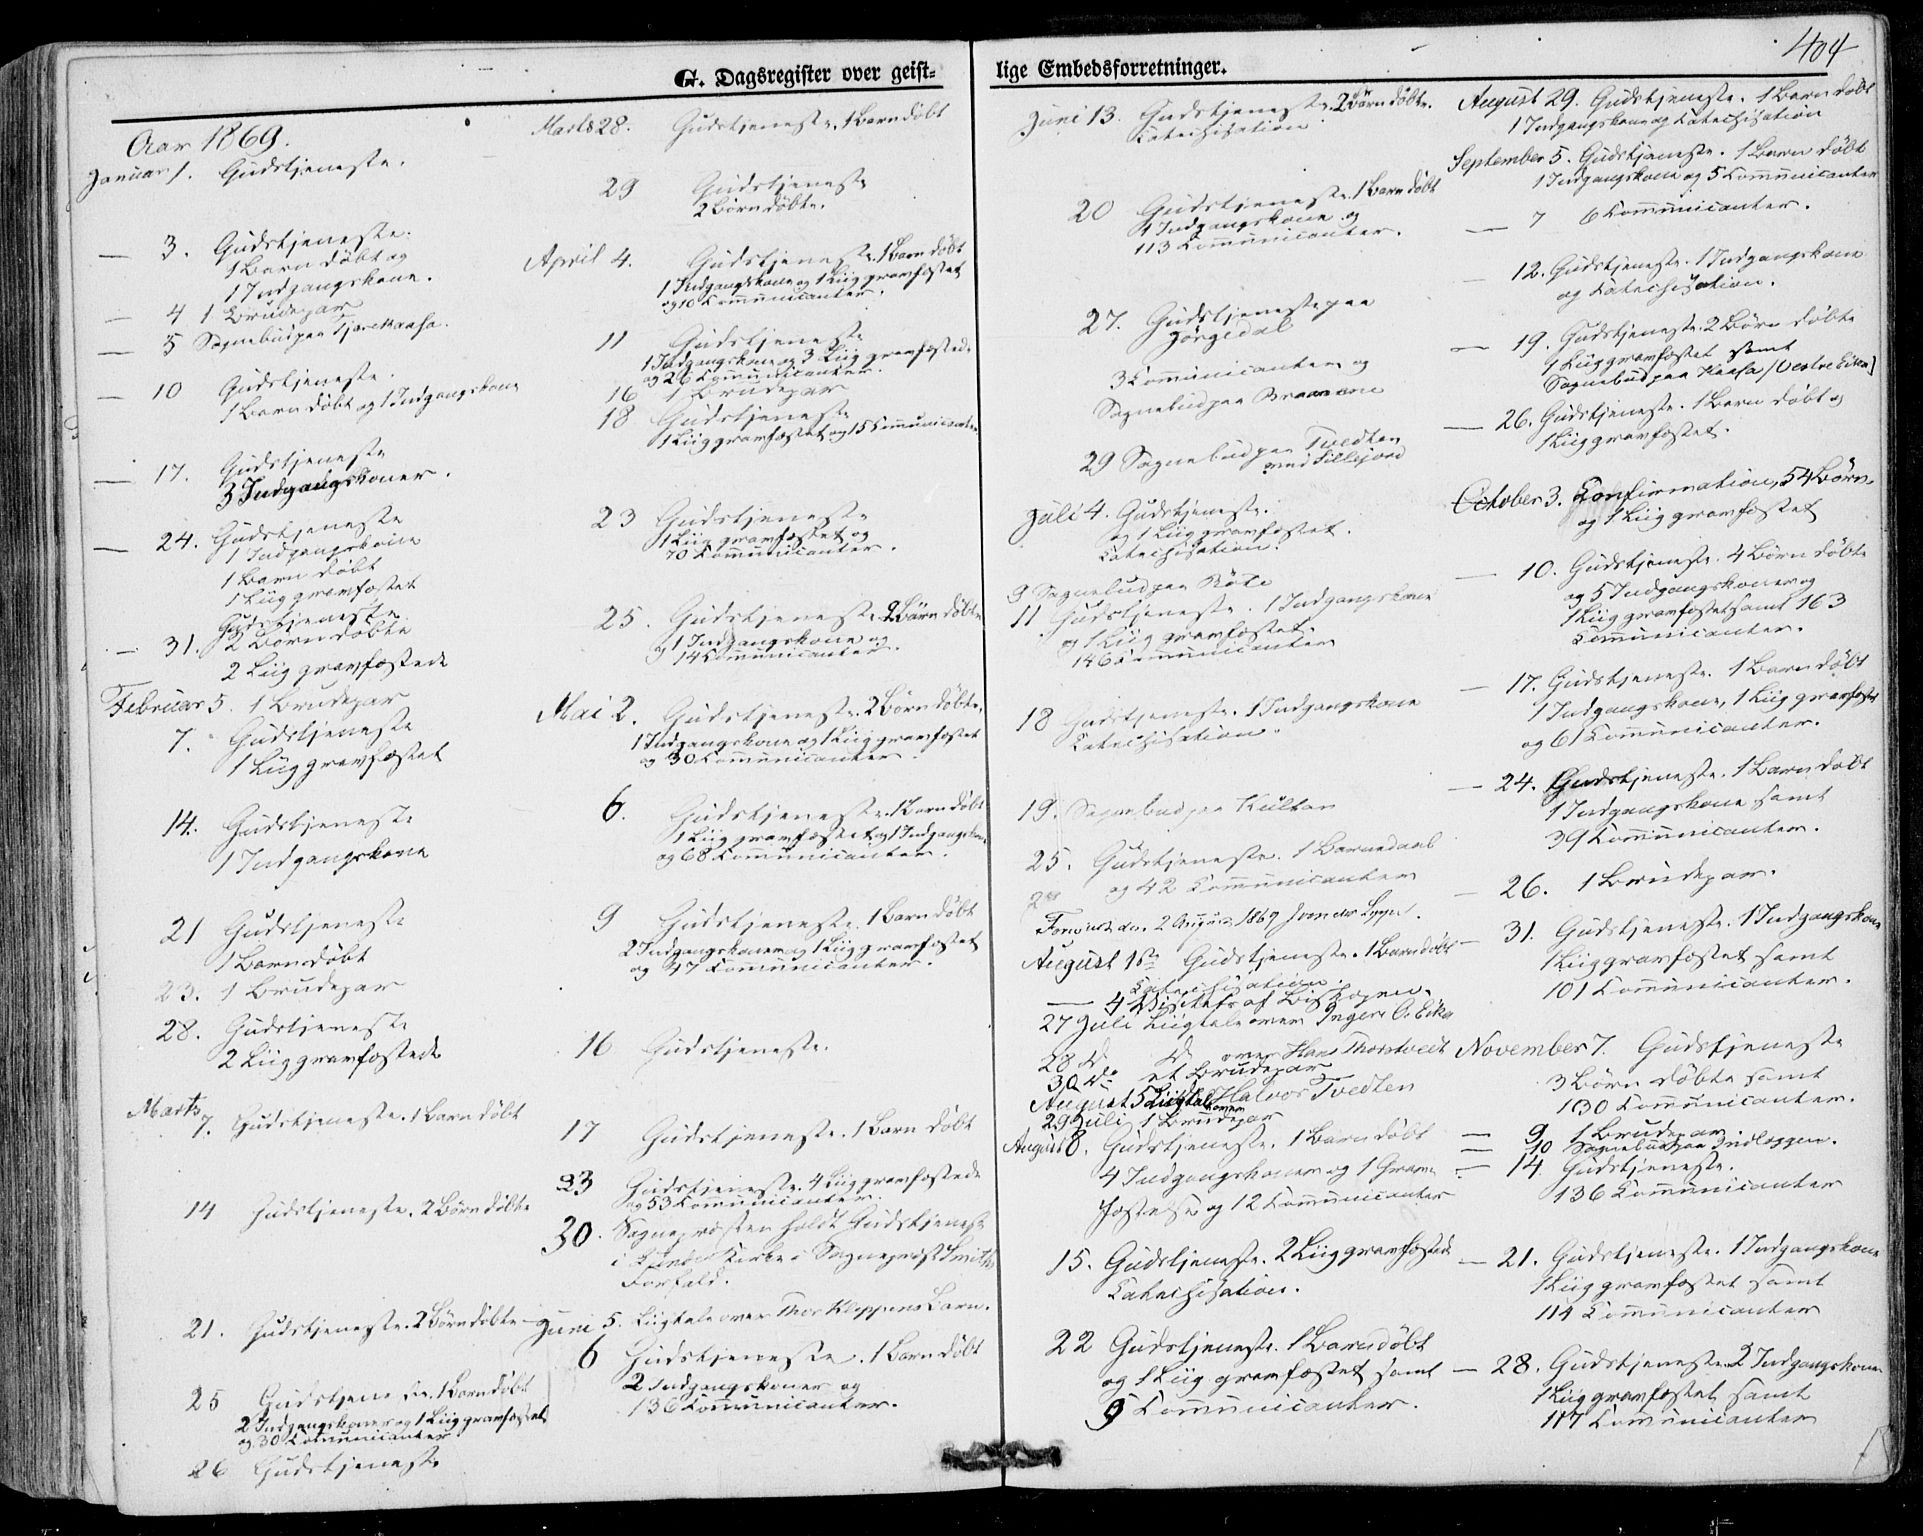 404
G. Dagsregister over geist=
lige Embedsforretninger.
Aar 1869.
Januar 1. Gudstjeneste.
— 3. Gudstjeneste.
1 Barn döbt og
1 Indgangskone.
— 4 1 Brudepar
— 5 Sognebud paa
— 10 Gudstjeneste.
1 Barn döbt og 1 Indgangskone
— 17. Gudstjeneste
3 Indgangskoner.
— 24. Gudstjeneste
1 Indgangskone
1 Barn döbt
1 Liig gravfæstet
Gudstjeneste
— 31. 2 Börn döbte
2 Liig gravfæstede
Februar 5. 1 Brudepar
7. Gudstjeneste
1 Liig gravfæstet
14. Gudstjeneste
1 Indgangskone
21 Gudstjeneste
1 Barn döbt
23. 1 Brudepar
28. Gudstjeneste
2 Liig gravfæstede
Marts 7. Gudstjeneste. 1 Barn döbt
14 Gudstjeneste. 2 Börn döbte
21. Gudstjeneste. 2 Börn döbte
25 Gudstjeneste. 1 Barn döbt
2 Indgangskoner og 1 Liig gravfæstet
og 30 Communicanter
26 Gudstjeneste
Marts 28. Gudstjeneste. 1 Barn döbt
29 Gudstjeneste
2 Börn döbte.
April 4. Gudstjeneste. 1 Barn döbt
1 Indgangskone og 1 Liig gravfæstet
og 10 Communicanter.
11 Gudstjeneste
1 Indgangskone og 3 Liig gravfæstede
og 26 Communicanter.
16 1 Brudepar
18 Gudstjeneste
1 Liig gravfæstet og 15 Communicanter
23 Gudstjeneste
1 Liig gravfæstet og
70 Communicanter.
25. Gudstjeneste. 2 Börn döbte
og 1 Indgangskone og
14 Communicanter.
Mai 2. Gudstjeneste. 2 Börn döbte,
1 Indgangskone og 1 Liig gravfæstet
og 30 Communicanter.
6. Gudstjeneste. 1 Barn döbt
1 Liig gravfæstet og 1 Indgangskone
og 68 Communicanter.
9 Gudstjeneste. 1 Barn döbt
2 Indgangskoner og 1 Liig gravfæstet
og 47 Communicanter.
16 Gudstjeneste.
17 Gudstjeneste. 1 Barn döbt
23 Gudstjeneste. 4 Liig gravfæstede
og 53 Communicanter.
30. Sognepræsten holdt Gudstjeneste
i Kirke i Sognepræst Smiths
Forfald.
Juni 5. Liigtale over Thor Kleppens Barn.
6 Gudstjeneste. 1 Barn döbt
2 Indgangskoner og
136 Communicanter.
Juni 13. Gudstjeneste. 2 Börn döbte.
Catechisation
20 Gudstjeneste. 1 Barn döbt
1 Indgangskone og
113 Communicanter.
27. Gudstjeneste paa
Jörgedal
3 Communicanter og
Sognebud paa
29 Sognebud paa Tvedten
ved Lillejord
Juli 4. Gudstjeneste.
og 1 Liig gravfæstet.
Catechisation.
9 Sognebud paa
11 Gudstjeneste. 1 Indgangskone
og 1 Liig gravfæstet.
146 Communicanter
18 Gudstjeneste. 1 Indgangskone
Catechisation.
19. Sognebud paa
25. Gudstjeneste. 1 Barnedaab
og 42 Communicanter
2 August 1869
August 1ste Gudstjeneste. 1 Barn döbt
Catechisation.
— 4 Visitats af Biskopen.
27 Juli Liigtale over Inger O. Eika
28 d. d. over Hans Thorstvedt
30 do et Brudepar
August 5 Liigtale over Halvor Tvedten
29 Juli 1 Brudepar
August 8. Gudstjeneste. 1 Barn döbt
4 Indgangskoner og 1 Grav-
fæstelse og 12 Communicanter
15. Gudstjeneste. 2 Liig gravfæstede
Catechisation.
22 Gudstjeneste. 1 Barn döbt
og 1 Liig gravfæstet samt
9 Communicanter.
August 29. Gudstjeneste. 1 Barn döbt
1 Indgangskone og Catechisation
September 5. Gudstjeneste. 1 Barn döbt
1 Indgangskone og 5 Communicanter
— 7 6 Communicanter.
— 12. Gudstjeneste. 1 Indgangskone
og Catechisation.
— 19. Gudstjeneste. 2 Börn döbte
1 Liig gravfæstet samt
Sognebud paa Kaasa (Vestre Eiken)
— 26. Gudstjeneste. 1 Barn döbt og
1 Liig gravfæstet.
October 3. Confirmation, 54 Börn.
og 1 Liig gravfæstet
— 10. Gudstjeneste. 4 Börn döbte
og 5 Indgangskoner og
1 Liig gravfæstet samt 163
Communicanter.
— 17. Gudstjeneste. 1 Barn döbt
1 Indgangskone, 1 Liig gravfæstet
og 61 Communicanter.
— 24. Gudstjeneste. 1 Barn döbt
1 Indgangskone samt
39 Communicanter.
— 26. 1 Brudepar.
— 31. Gudstjeneste. 1 Indgangskone
1 Liig gravfæstet samt
101 Communicanter.
November 7. Gudstjeneste
3 Börn döbte samt
130 Communicanter.
— 9 1 Brudepar.
— 10 Sognebud paa Indlæggen.
— 14. Gudstjeneste.
136 Communicanter
— 21. Gudstjeneste. 1 Indgangskone
1 Liig gravfæstet samt
114 Communicanter
— 28. Gudstjeneste. 2 Indgangskoner
1 Liig gravfæstet samt
117 Communicanter